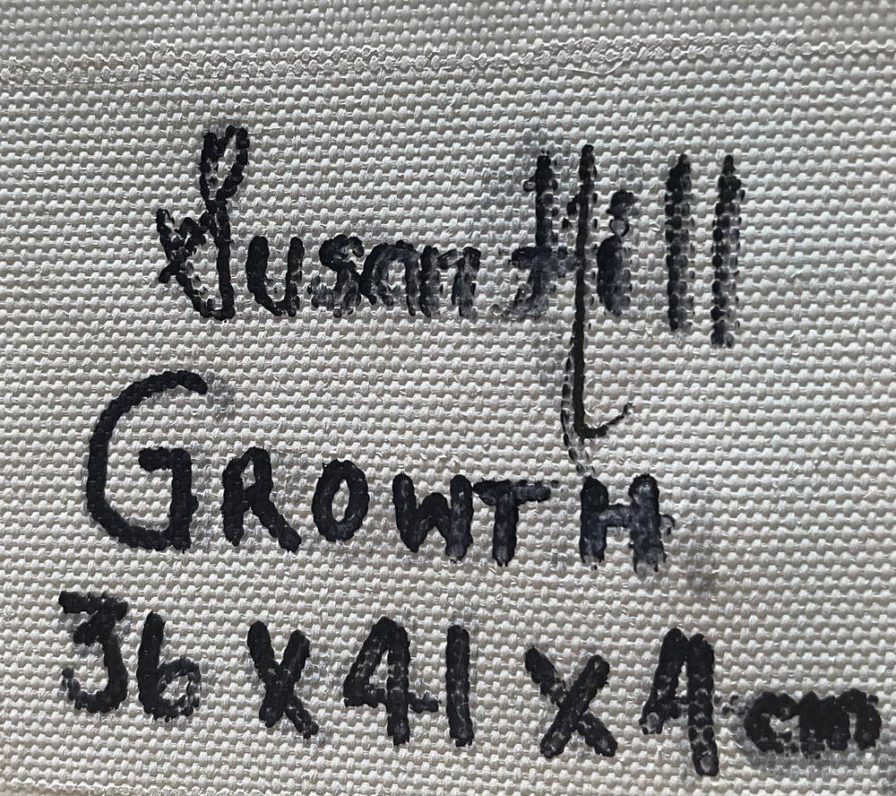 Susan Hill
GROWTH
36 X 41 X 4 cm